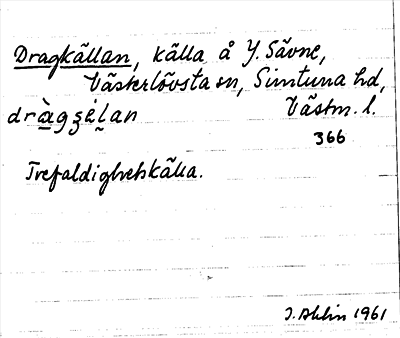 Dragkällan, källa å Y. Sävne,
Västerlövsta sn, Simtuna hd,
dràgʒèl̯an Västm. l.
366
Trefaldighetskälla.
I. Ahlin 1961